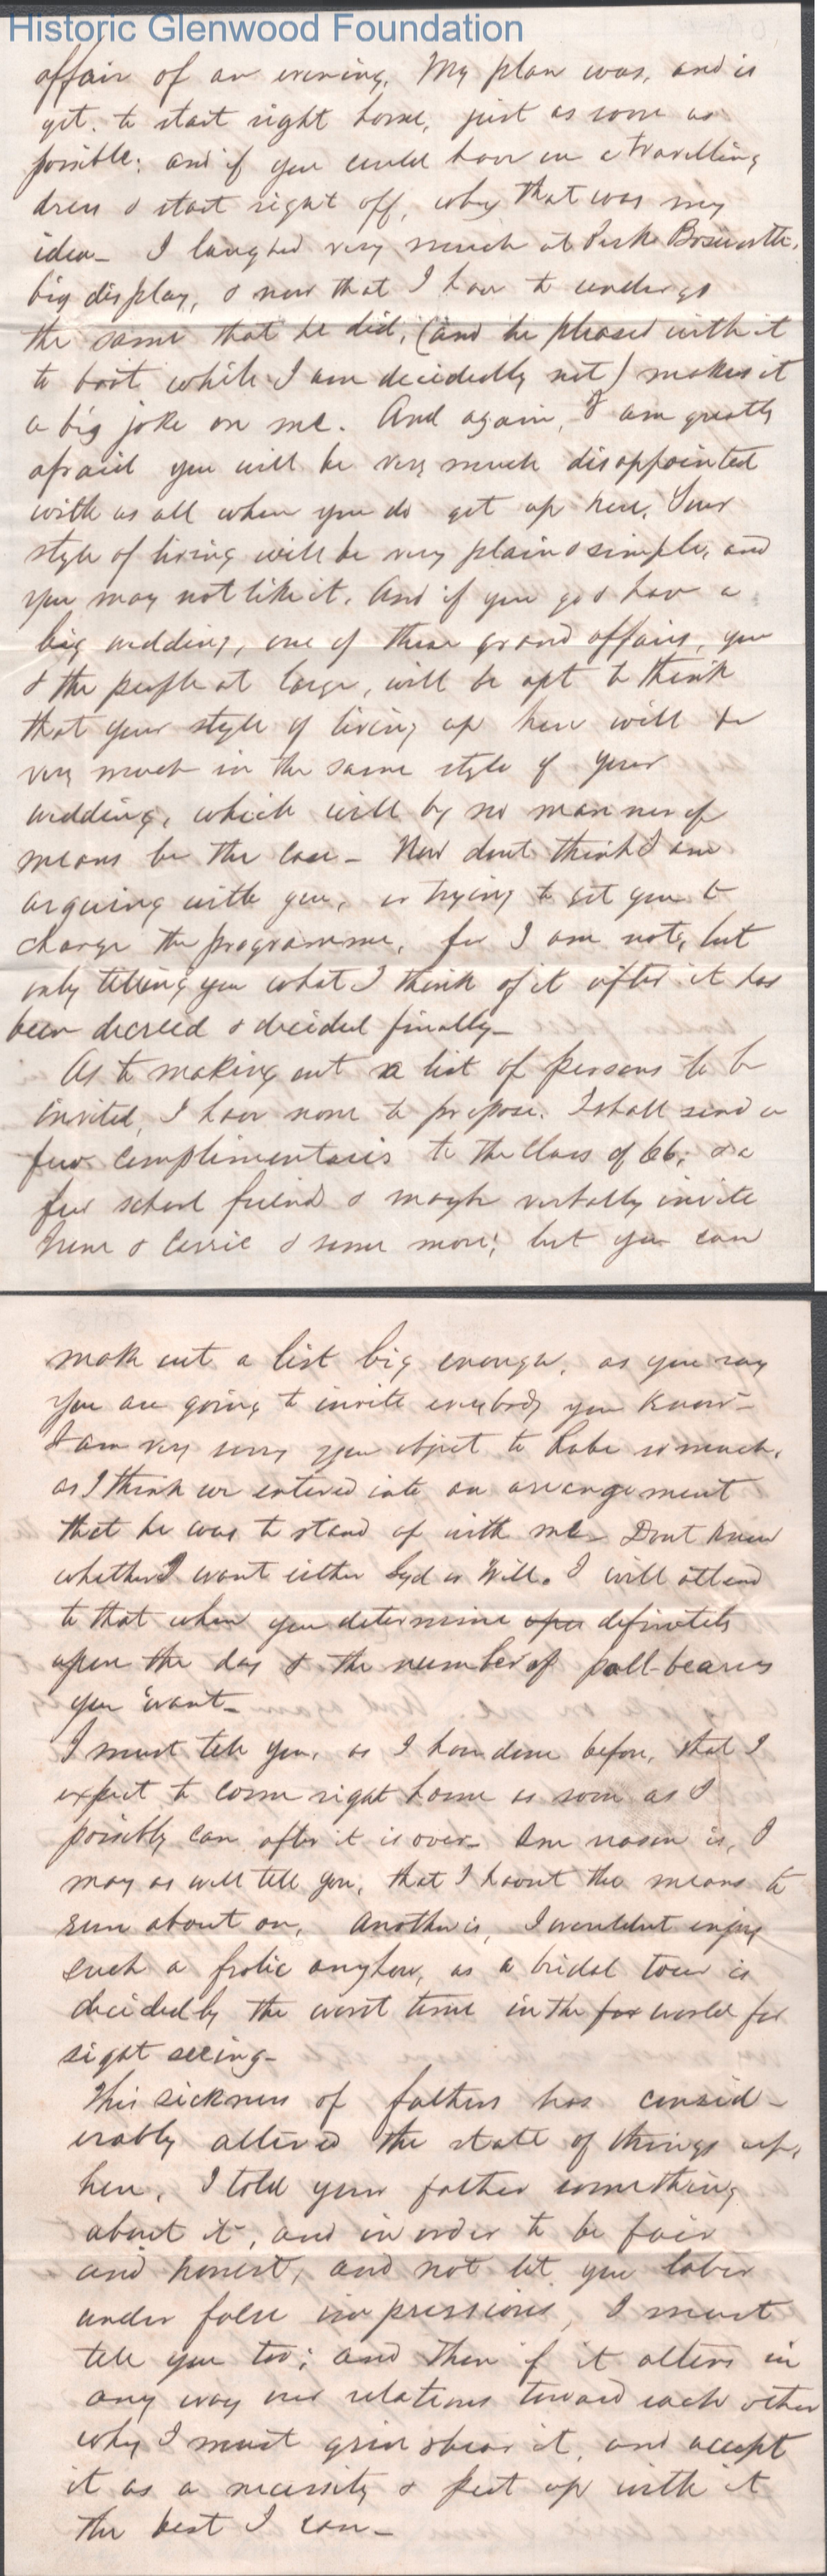 Historic Glenwood Foundation
affair of an evening. My plan was, and is
yet. to start right home, just as soon as
possible: and if you could have on a travelling
dress & start right off, why that was my
idea_ I laughed very much at Bosworth,
big display, & now that I have to undergo
the same that he did, (and he pleased with it
to boot while I am decidedly not) makes it
a big joke on me. And again, I am greatly
afraid you will be very much disappointed
with us all when you do get up here. Your
style of living will be very plain & simple, and
you may not like it. And if you go & have a
big wedding, one of these grand affairs, you
& the people at large, will be apt to think
that your style of living up here will be
very much in the same style of your
wedding, which will by no manner of
means be the case_ Now dont think I am
arguing with you, or trying to get you to
change the programme, for I am not, but
only telling you what I think of it after it has
been decreed & decided finally_
As to making out a list of persons to be
invited, I have none to propose. I shall send a
few complimentaries to the Class of 66, & a
few school friends & maybe verbally invite
Irene & Carrie & some more; but you can
make out a list big enough, as you say
you are going to invite everybody you know_
I am very sorry you object to Rabe so much,
as I think we entered into an arrangement
that he was to stand up with me_ Dont know
whether I want either Syd or Will. I will attend
to that when you determine upon definitely
upon the day & the number of pall-bearers
you want_
I must tell you, as I have done before, that I
expect to come right home as soon as I
possibly can after it is over_ One reason is, I
may as well tell you, that I havnt the means to
run about on, Another is, I wouldnt enjoy
such a frolic anyhow, as a bridal tour is
decidedly the worst time in the for world for
sight seeing_
This sickness of fathers has consid-
erably altered the state of things up,
here, I told your father something
about it, and in order to be fair
and honest, and not let you labor
under false impressions, I must
tell you too; and then if it alters in
any way our relations toward each other
why I must grin & bear it, and accept
it as a necessity & put up with it
the best I can_